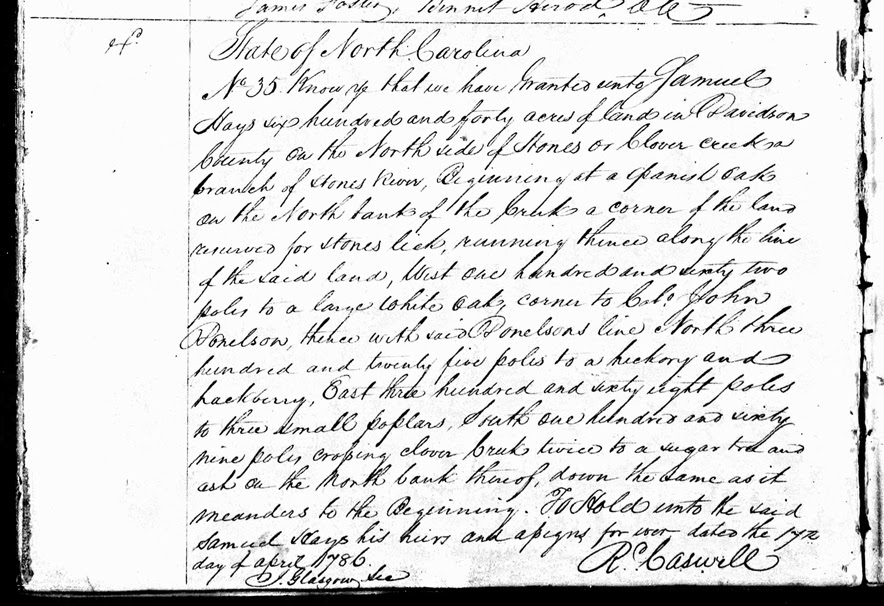 James Foster, Bennet Herod
State of North Carolina
No 35 Know ye that we have Granted unto Samuel
Hays six hundred and forty acres of land in Davidson
County on the North side of Stones or Clover creek a
branch of stones River, Beginning at a Spanish oak
on the North bank of the Creek a corner of the land
reserved for stones lick, running thence along the line
of the said land, West one hundred and sixty two
poles to a large white oak, corner to Colo John
Donelson, thence with said Donelsons line North three
hundred and twenty five poles to a hickory and
hackberry, East three hundred and sixty eight poles
to three small poplars, South one hundred and sixty
nine poles crossing clover Creek twice to a sugar tree and
ash on the North bank thereof, down the same as it
meanders to the Beginning. To Hold unto the said
Samuel Hays his heirs and assigns for ever dated the 17th
day of april 1786.
Rd. Caswell
J. Glasgow Sec